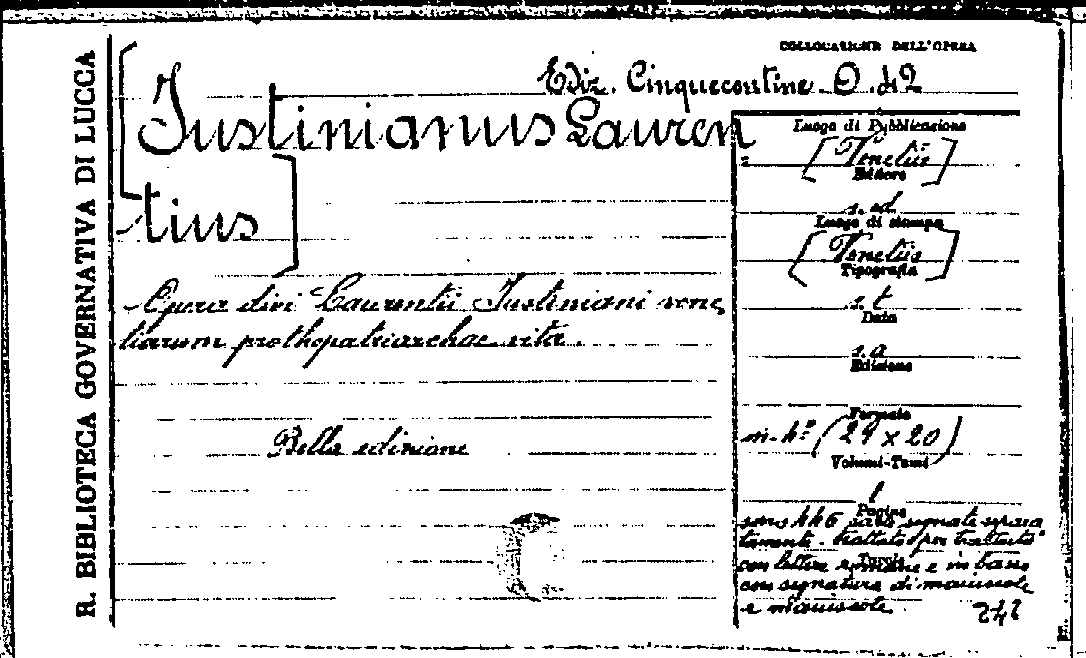 R. BIBLIOTECA GOVERNATIVA DI LUCCA
COLLOCAZIONE DELL'OPERA
Ediz. Cinquecentine O. 42
[Justinianus Lauren
tius]
Opera divi Laurentii Justiniani vene
tiarum prothopatriarchae vita.
Bella edizione
Luogo di Pubblicazione
[Venetiis]
Editore
s. ed.
Luogo di stampa
[Venetiis]
Tipografia
s. t
Data
s. a
Edizione
Formato
m-4º (29 x 20)
Volumi-Tomi
1
Pagine
sono 446 segnate separa
tamente trattato per trattato
con lettere romane e in basso
Tavole
con segnatura di maiuscole
e minuscole.
242